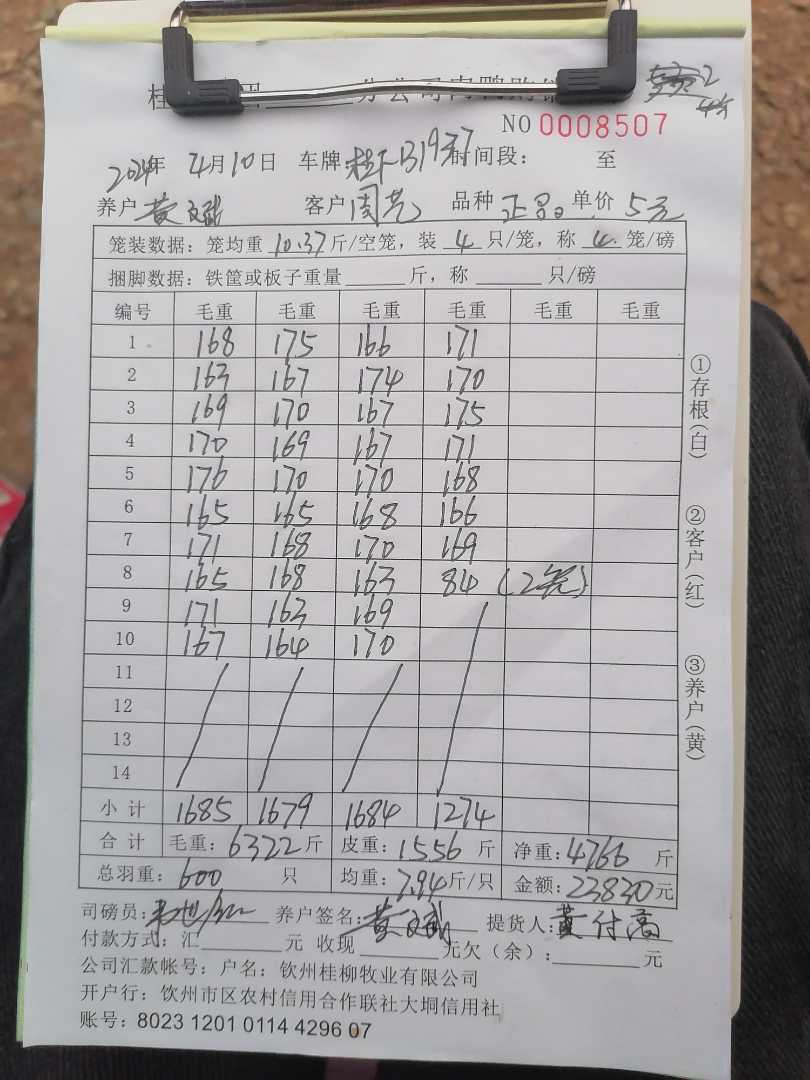 桂 分公司肉鸭购销
NO 0008507
2024年 4月10日 车牌: 时间段: 至
养户 黄文斌 客户 周艺 品种 正品 单价 5元
笼装数据: 笼均重 10.37 斤/空笼, 装 4 只/笼, 称 4 笼/磅
捆脚数据: 铁筐或板子重量______斤, 称______只/磅
编号 毛重 毛重 毛重 毛重 毛重 毛重
1 168 175 166 171
2 163 167 174 170
3 169 170 167 175
4 170 169 167 171
5 176 170 170 168
6 165 165 168 166
7 171 168 170 169
8 165 168 163 84 (2笼)
9 171 163 169
10 167 164 170
11
12
13
14
小计 1685 1679 1684 1274
合计 毛重: 6322 斤 皮重: 1556 斤 净重: 4766 斤
总羽重: 600 只 均重: 7.94 斤/只 金额: 23830 元
司磅员: 养户签名: 黄文斌 提货人: 黄付高
付款方式: 汇______元 收现______元欠(余):______元
公司汇款帐号: 户名: 钦州桂柳牧业有限公司
开户行: 钦州市区农村信用合作联社大垌信用社
账号: 8023 1201 0114 4296 07
①存根(白)
②客户(红)
③养户(黄)